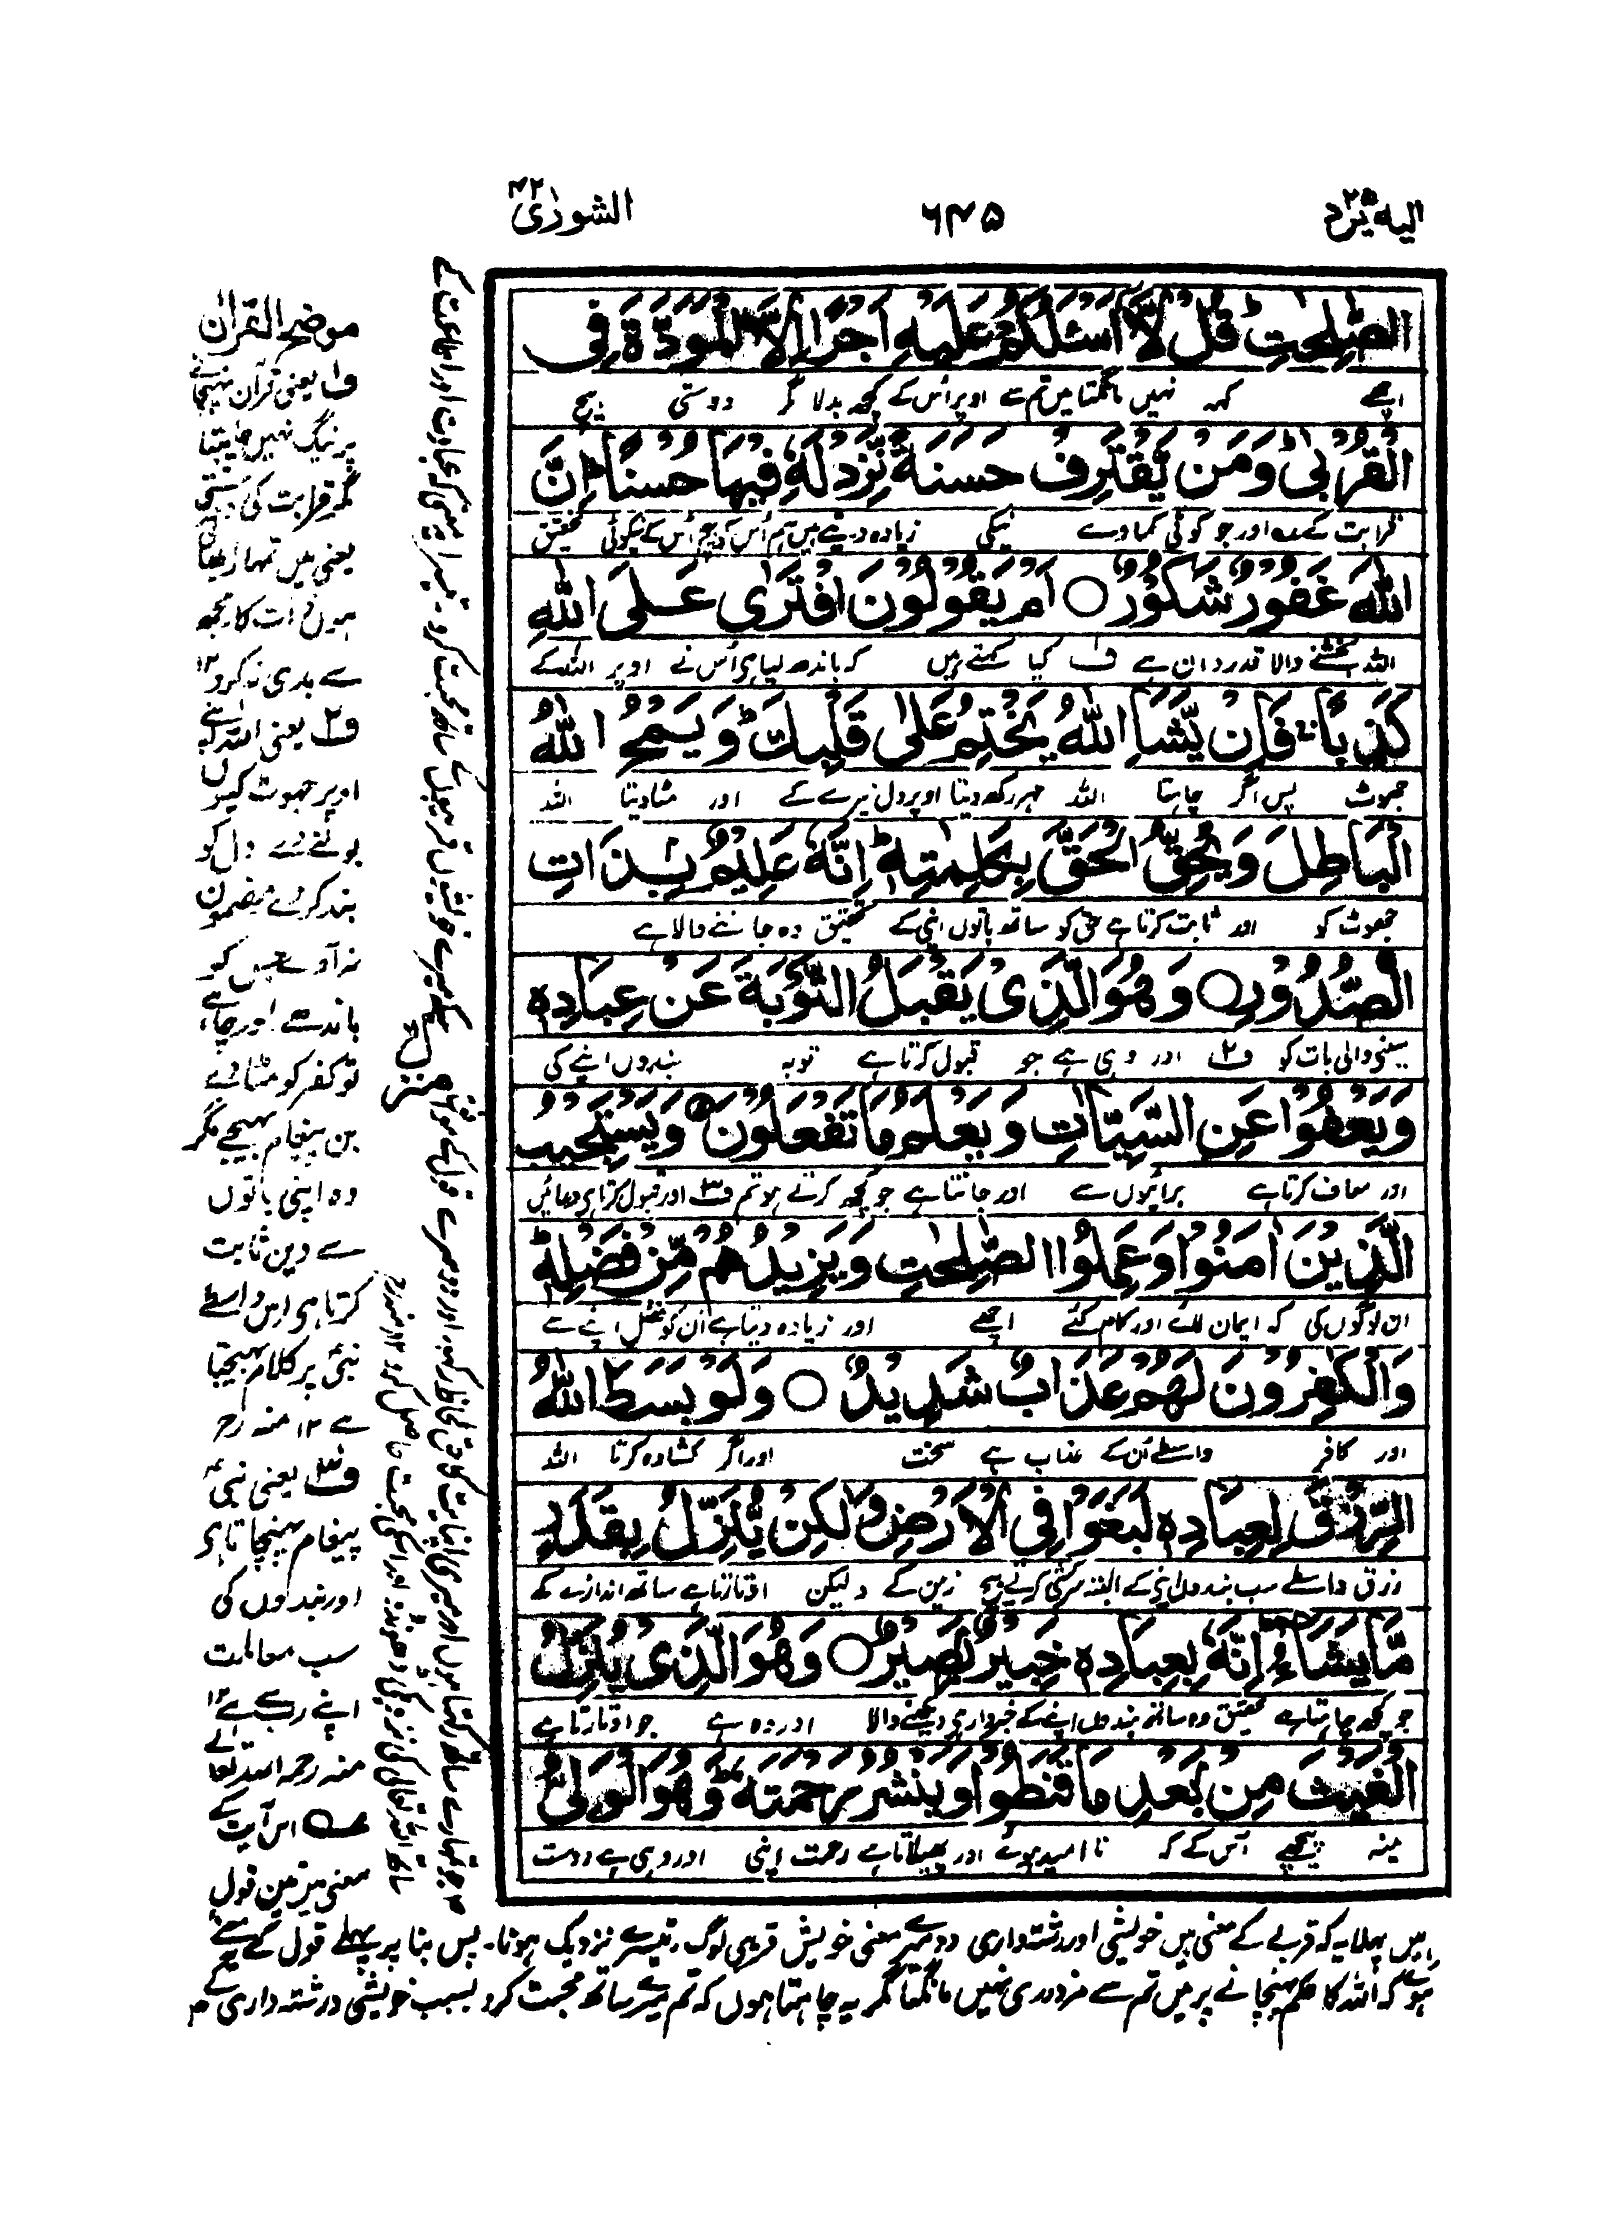 الیه یرد ۲۵
۶۴۵
الشورٰی ۴۲
الصّٰلِحٰتِ ؕ قُلْ لَّاۤ اَسْـَٔلُكُمْ عَلَیْهِ اَجْرًا اِلَّا الْمَوَدَّةَ فِی
اچھے کہہ نہیں مانگتا میں تم سے اوپر اُس کے کچھ بدلا مگر دوستی بیچ
الْقُرْبٰی ؕ وَمَنْ یَّقْتَرِفْ حَسَنَةً نَّزِدْ لَهٗ فِیْهَا حُسْنًا ؕ اِنَّ
قرابت کے اور جو کوئی کماوے نیکی زیادہ دیتے ہیں ہم اُس کو بیچ اُس کے نیکوئی تحقیق
اللّٰهَ غَفُوْرٌ شَكُوْرٌ ○ اَمْ یَقُوْلُوْنَ افْتَرٰی عَلَی اللّٰهِ
اللہ بخشنے والا قدردان ہے ف۱ کیا کہتے ہیں کہ باندھ لیا ہی اُس نے اوپر اللہ کے
كَذِبًا ۚ فَاِنْ یَّشَاِ اللّٰهُ یَخْتِمْ عَلٰی قَلْبِكَ ؕ وَیَمْحُ اللّٰهُ
جھوٹ پس اگر چاہتا اللہ مہر رکھ دیتا اوپر دل تیرے کے اور مٹا دیتا اللہ
الْبَاطِلَ وَیُحِقُّ الْحَقَّ بِكَلِمٰتِهٖ ؕ اِنَّهٗ عَلِیْمٌۢ بِذَاتِ
جھوٹ کو اور ثابت کرتا ہے حق کو ساتھ باتوں اپنی کے تحقیق وہ جاننے والا ہے
الصُّدُوْرِ ○ وَهُوَ الَّذِیْ یَقْبَلُ التَّوْبَةَ عَنْ عِبَادِهٖ
سینے والی بات کو ف۲ اور وہی ہے جو قبول کرتا ہے توبہ بندوں اپنے کی
وَیَعْفُوْا عَنِ السَّیِّاٰتِ وَیَعْلَمُ مَا تَفْعَلُوْنَ وَیَسْتَجِیْبُ
اور معاف کرتا ہے برائیوں سے اور جانتا ہے جو کچھ کرتے ہو تم ف۳ اور قبول کرتا ہی دعائیں
الَّذِیْنَ اٰمَنُوْا وَعَمِلُوا الصّٰلِحٰتِ وَیَزِیْدُهُمْ مِّنْ فَضْلِهٖ ؕ
ان لوگوں کی کہ ایمان لائے اور کام کئے اچھے اور زیادہ دیتا ہے ان کو فضل اپنے سے
وَالْكٰفِرُوْنَ لَهُمْ عَذَابٌ شَدِیْدٌ ○ وَلَوْ بَسَطَ اللّٰهُ
اور کافر واسطے اُن کے عذاب ہے سخت اور اگر کشادہ کرتا اللہ
الرِّزْقَ لِعِبَادِهٖ لَبَغَوْا فِی الْاَرْضِ وَلٰكِنْ یُّنَزِّلُ بِقَدَرٍ
رزق واسطے سب بندوں اپنے کے البتہ سرکشی کرتے بیچ زمین کے ولیکن اوتارتا ہے ساتھ اندازے کے
مَّا یَشَآءُ ؕ اِنَّهٗ بِعِبَادِهٖ خَبِیْرٌۢ بَصِیْرٌ ○ وَهُوَ الَّذِیْ یُنَزِّلُ
جو کچھ چاہتا ہے تحقیق وہ ساتھ بندوں اپنے کے خبردار ہی دیکھنے والا اور وہ ہے جو اوتارتا ہے
الْغَیْثَ مِنْۢ بَعْدِ مَا قَنَطُوْا وَیَنْشُرُ رَحْمَتَهٗ ؕ وَهُوَ الْوَلِیُّ
مینہ پیچھے اس کے کہ ناامید ہوئے اور پھیلاتا ہے رحمت اپنی اور وہی ہے دوست
موضح القرآن
ف۱ یعنی قرآن پہنچانے
پر نیگ نہیں چاہتا
مگر قرابت کی دوستی
یعنی میں تمہارا بھائی
ہوں ذات کا مجھ
سے بدی نہ کرو ۱۲
ف۲ یعنی اللہ اپنے
اوپر جھوٹ کیوں
بولنے دے دل کو
بند کر دے مضمون
نہ آوے جس کو
باندھے اور چاہے
تو کفر کو مٹا دے
بن پیغام بھیجے مگر
وہ اپنی باتوں
سے دین ثابت
کرتا ہی اس واسطے
نبی پر کلام بھیجتا
ہے ۱۲ منہ رح
ف۳ یعنی نبی
پیغام پہنچاتا ہے
اور بندوں کی
سب معاملت
اپنے رب سے ۱۲
منہ رحمہ اللہ تعالٰے
اس آیت کے
معنی میں تین قول
ہیں پہلا یہ کہ قربےٰ کے معنی میں خویشی اور رشتہ داری دوسرے معنی خویش قریبی لوگ، تیسرے نزدیک ہونا۔ پس بنا پر پہلے قول کے معنے
ہوئے کہ اللہ کا حکم پہنچانے پر میں تم سے مزدوری نہیں مانگتا مگر یہ چاہتا ہوں کہ تم میرے ساتھ محبت کرو بسبب خویشی و رشتہ داری کے